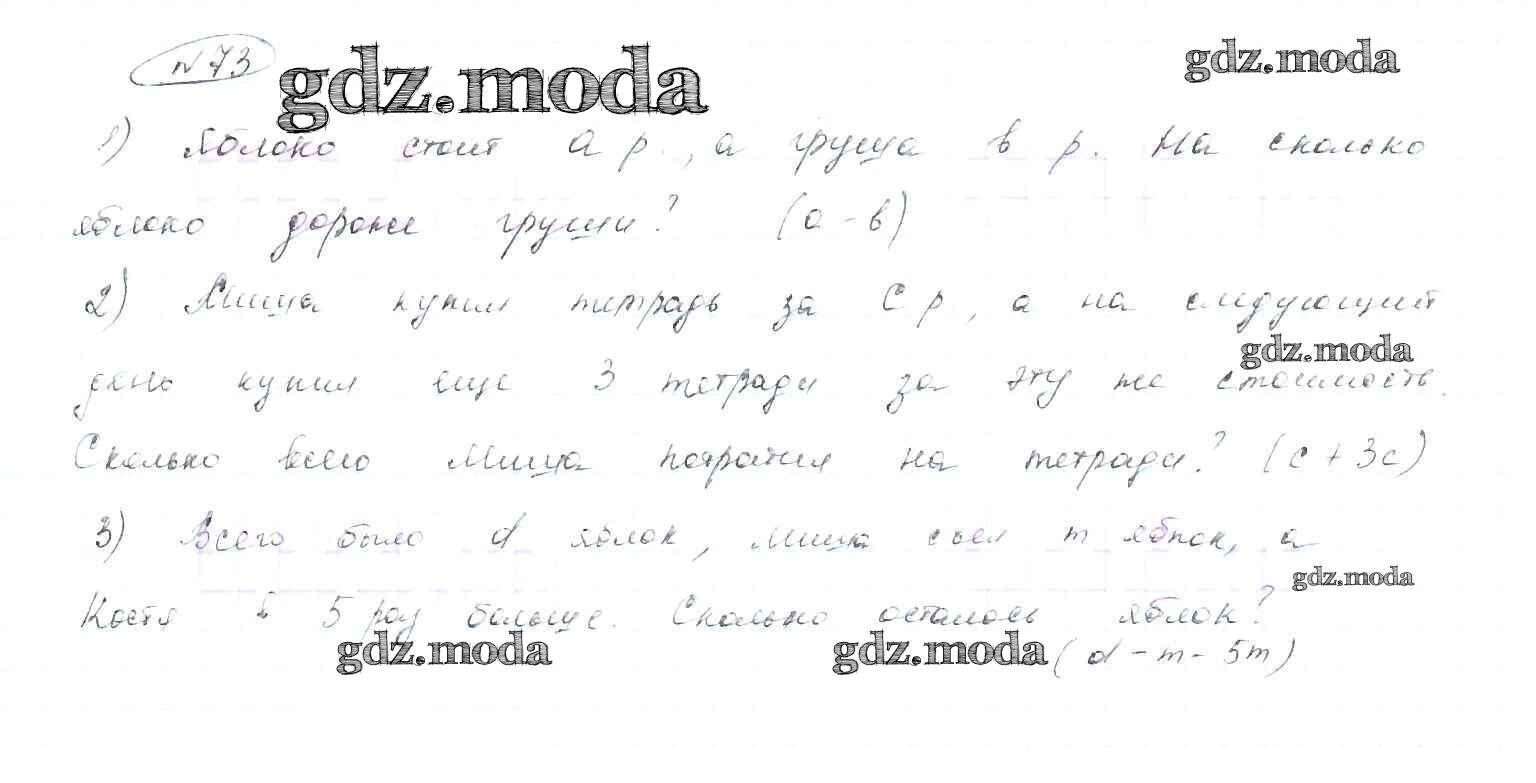 № 73
gdz.moda
gdz.moda
1) Яблоко стоит а р., а груша в р. На сколько
яблоко дороже груши? (а - в)
2) Миша купил тетрадь за С р, а на следующий
gdz.moda
день купил еще 3 тетради за эту же стоимость.
Сколько всего Миша потратил на тетради? (с + 3с)
3) Всего было d яблок, Миша съел m яблок, а
gdz.moda
Костя в 5 раз больше. Сколько осталось яблок?
gdz.moda
gdz.moda
(d - m - 5m)